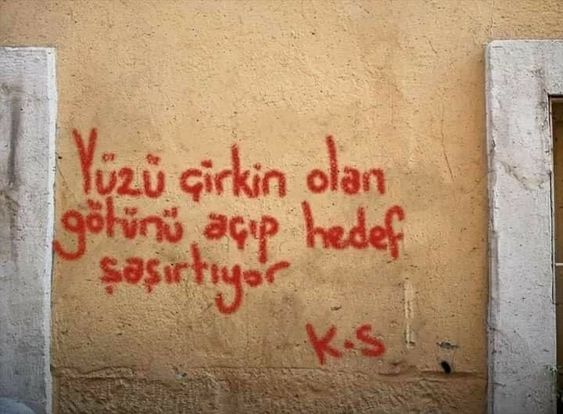 Yüzü çirkin olan
götünü açıp hedef
şaşırtıyor
K-S